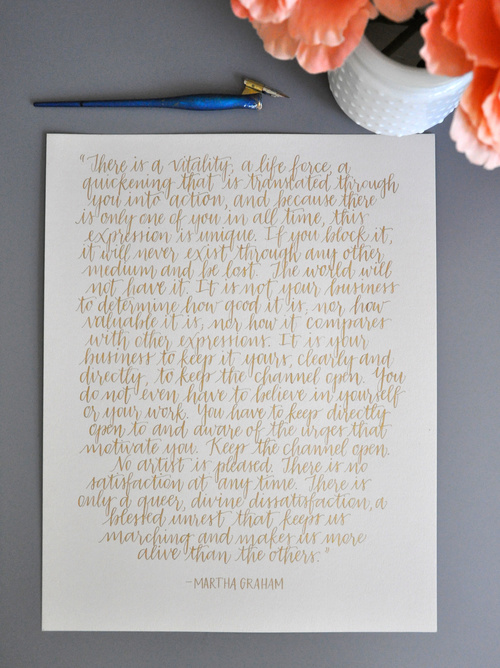 "There is a vitality, a life force, a
quickening that is translated through
you into action, and because there
is only one of you in all time, this
expression is unique. If you block it,
it will never exist through any other
medium and be lost. The world will
not have it. It is not your business
to determine how good it is, nor how
valuable it is, nor how it compares
with other expressions. It is your
business to keep it yours, clearly and
directly, to keep the channel open. You
do not even have to believe in yourself
or your work. You have to keep directly
open to and aware of the urges that
motivate you. Keep the channel open.
No artist is pleased. There is no
satisfaction at any time. There is
only a queer, divine dissatisfaction, a
blessed unrest that keeps us
marching and makes us more
alive than the others."
-MARTHA GRAHAM